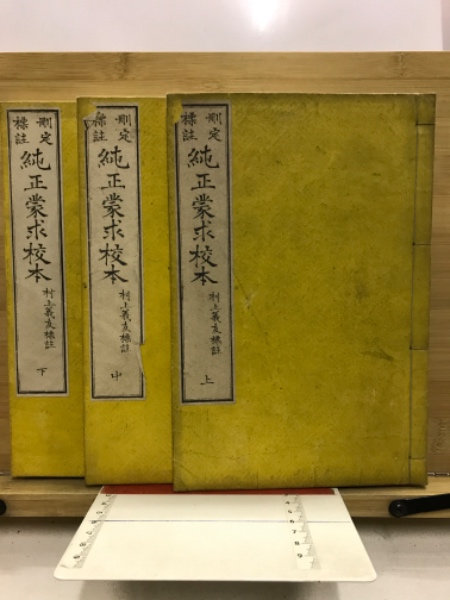 刪定
標註
純正蒙求校本
村上義友標註
上
刪定
標註
純正蒙求校本
村上義友標註
中
刪定
標註
純正蒙求校本
村上義友標註
下